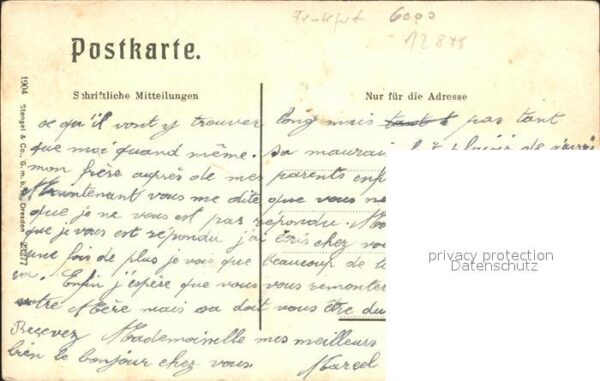 Frankfurt 6000
12845
Postkarte.
Schriftliche Mitteilungen
Nur für die Adresse
1904 Stengel & Co., G. m. b. H., Dresden 21277
ce qu'il vont y trouver long mais pas tant
que moi quand même. sa plaisir de
mon frère auprès de mes parents
Maintenant vous me dite que vous ne
que je ne vous est pas répondu.
que je vous est répondu j'ai écris chez vous
une fois de plus je vois que beaucoup de
Enfin j'espère que vous vous
Mère mais sa doit vous être
Recevez Mademoiselle mes meilleurs
bien le bonjour chez vous. Marcel
privacy protection
Datenschutz